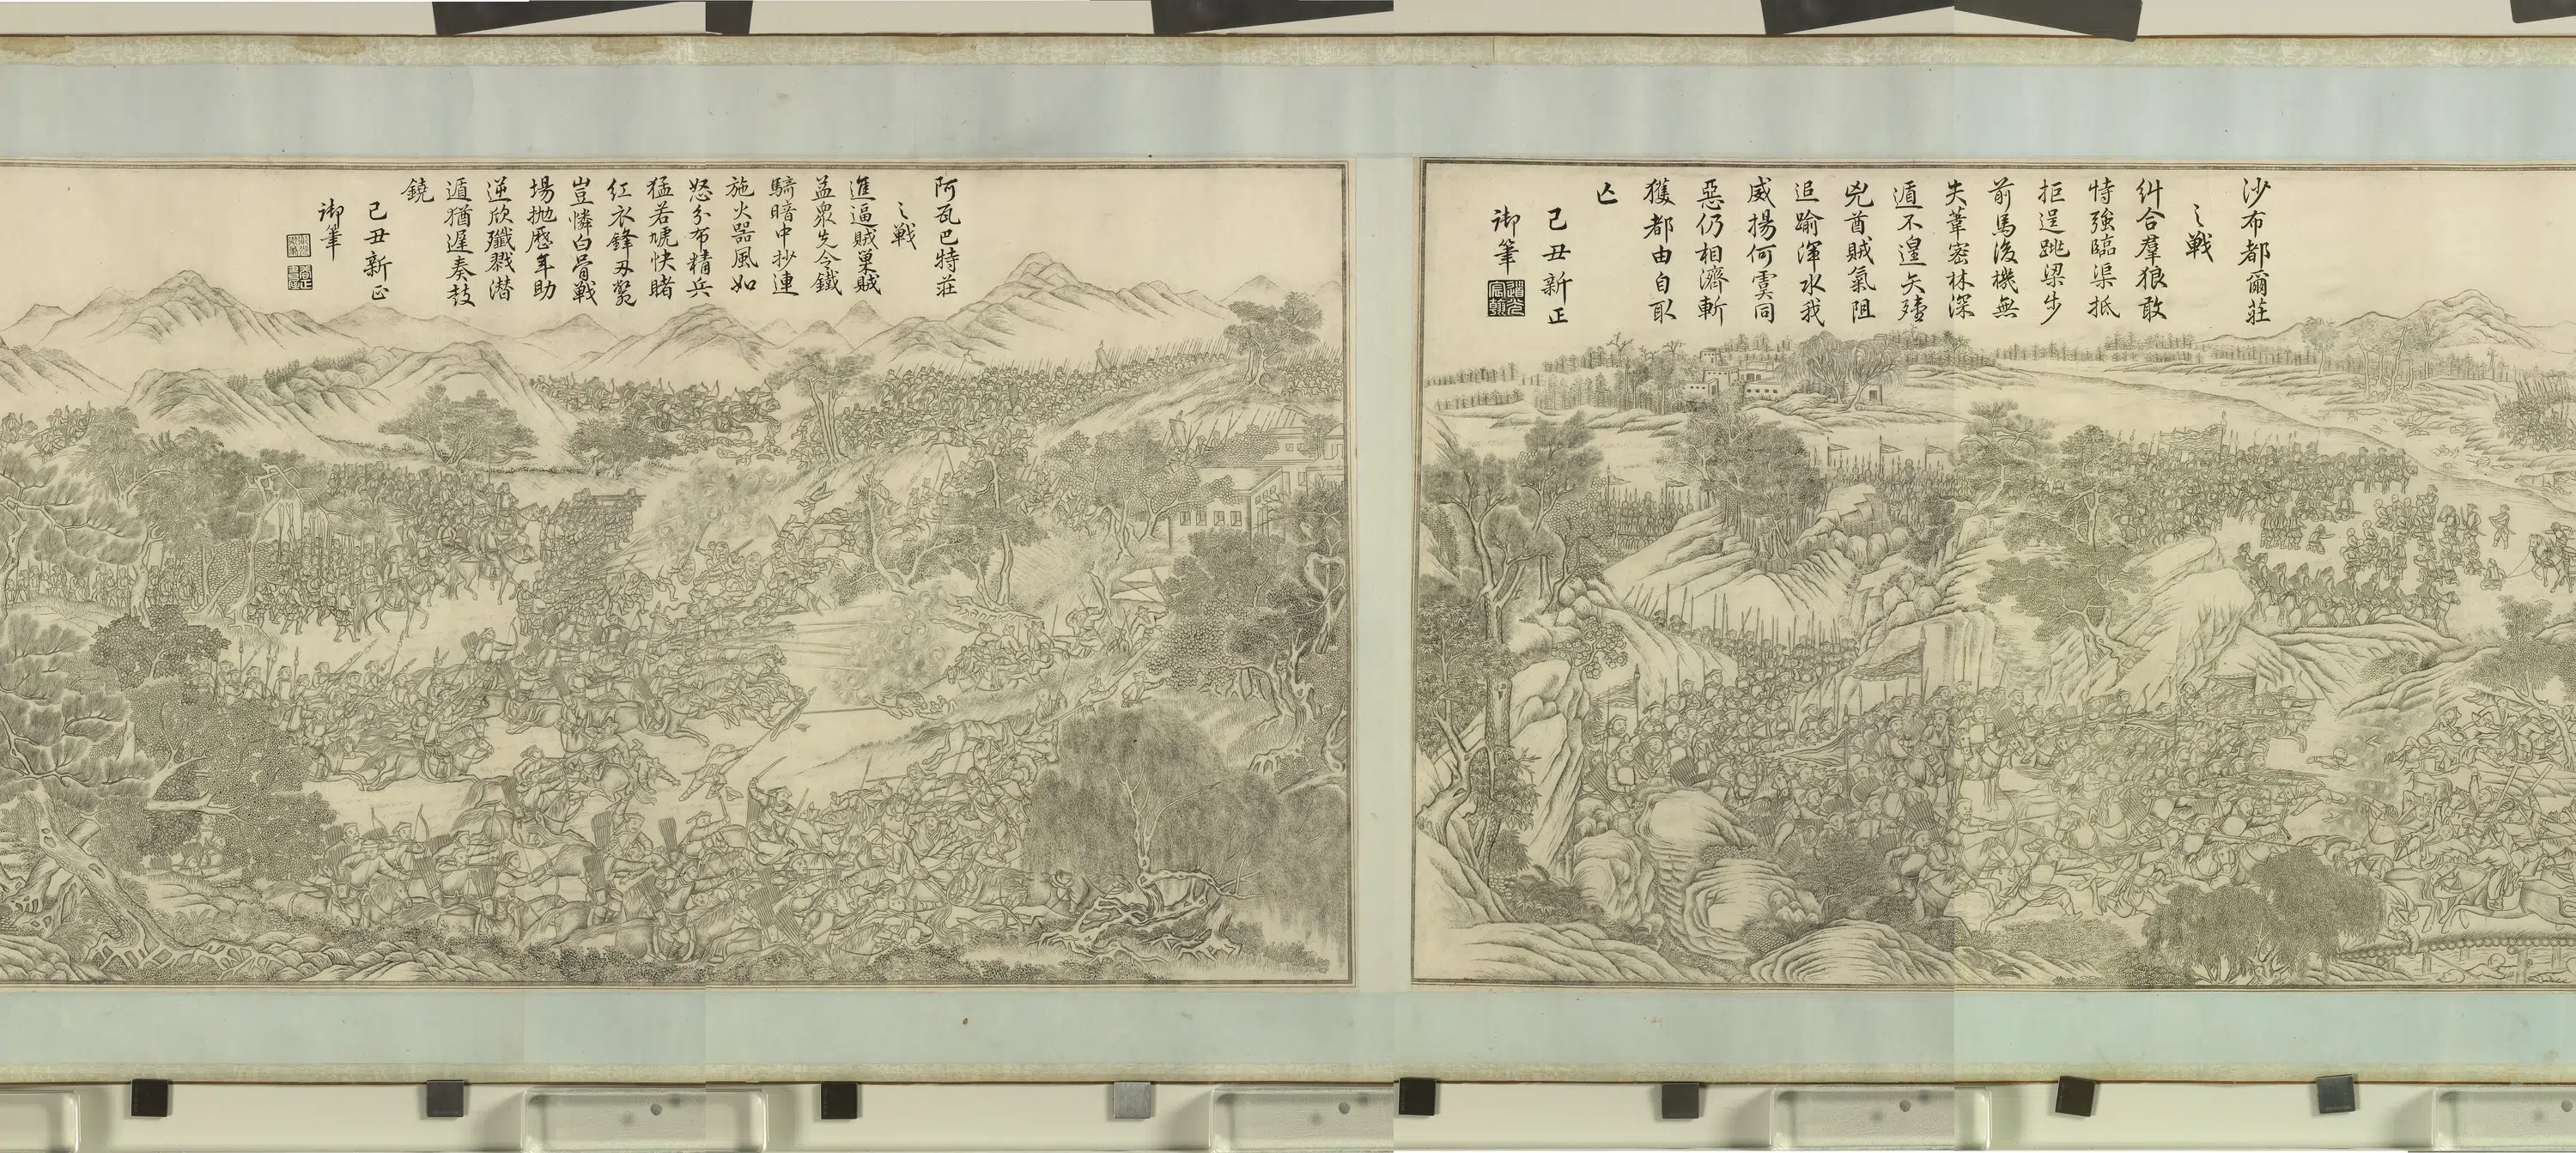 沙布都爾莊
之戰
糾合羣狼敢
恃強臨渠抵
拒逞跳梁步
前馬後機無
失葦密林深
遁不遑矢殪
兇酋賊氣阻
追踰渾水我
威揚何虞同
惡仍相濟斬
獲都由自取
亡
己丑新正
御筆
道光
宸翰
阿瓦巴特莊
之戰
進逼賊巢賊
益衆先令鐵
騎暗中抄連
施火器風如
怒分布精兵
猛若虓快睹
紅衣鋒刃斃
豈憐白骨戰
場拋歷年助
逆欣殲戮潛
遁猶遲奏鼓
鐃
己丑新正
御筆